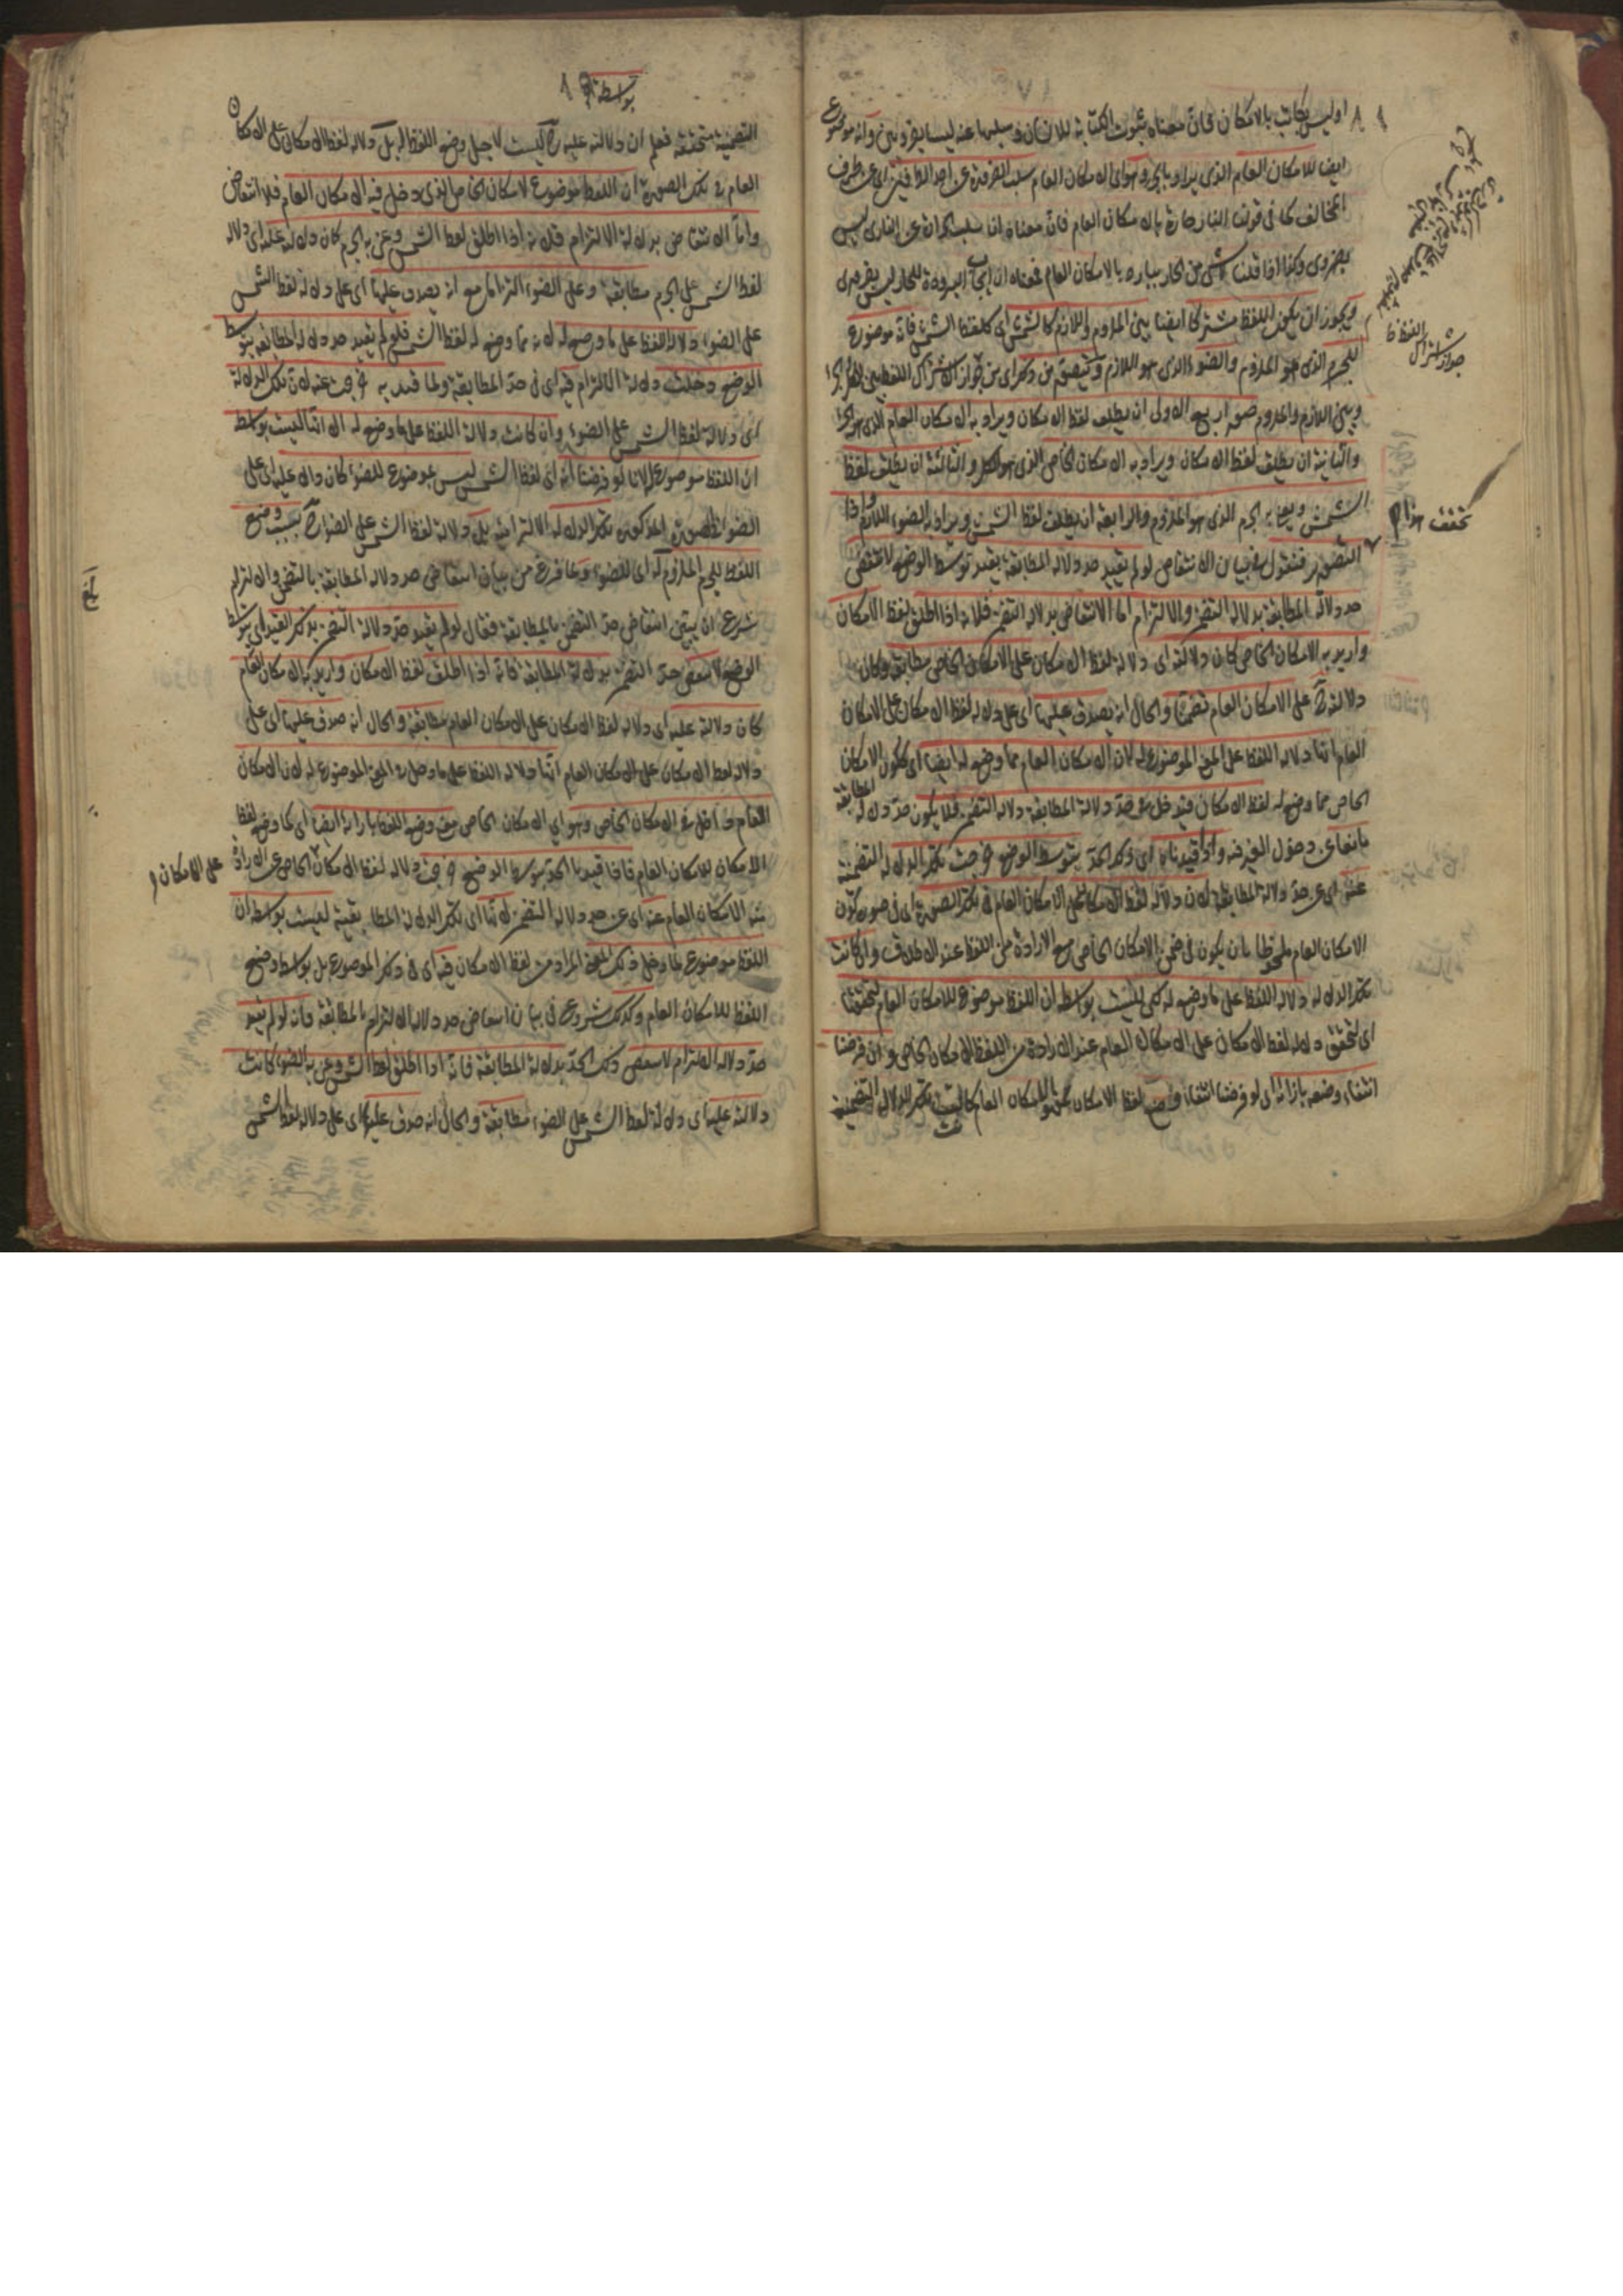 اوليس بكاتب بالامكان فان معناه ثبوت الكتابة للانسان و سلبها عنه ليسا بضروريين وانه موضوع
ايضا للامكان العام الذى يراد بالجزء وهو اى الامكان العام سلب الضرورة عن احد الطرفين اى عن طرف
المخالف كما فى قولنا النار حارة بالامكان العام فان معناه ان سلب الحرارة عن النار ليس
بضرورى وكذا اذا قلنا لا شئ من الحار ببارد بالامكان العام فمعناه ان ايجاب البرودة للحار ليس بضرورى
ويجوز ان يكون اللفظ مشتركا ايضا بين الملزوم واللازم كالشمس اى كلفظ الشمس فانه موضوع
للجرم الذى هو الملزوم والضوء الذى هو اللازم ويتصور من ذكر اى من جواز اشتراك اللفظ بين الكل والجزء
وبين اللازم والملزوم صور اربع الاولى ان يطلق لفظ الامكان ويراد به الامكان العام الذى هو الجزء
والثانية ان يطلق لفظ الامكان ويراد به الامكان الخاص الذى هو الكل والثالثة ان يطلق لفظ
الشمس ويعنى به الجرم الذى هو الملزوم والرابعة ان يطلق لفظ الشمس ويراد به الضوء اللازم واذا
التصور فنقول فى بيان الانتقاض لو لم يقيد حد دلالة المطابقة بقيد توسط الوضع لانتقض
حد دلالة المطابقة بدلالة التضمن والالتزام اما الانتقاض بدلالة التضمن فلانه اذا اطلق لفظ الامكان
واريد به الامكان الخاص كان دلالته اى دلالة لفظ الامكان على الامكان الخاص مطابقة وكان
دلالته ح على الامكان العام تضمنا والحال انه يصدق عليها اى على دلالة لفظ الامكان على الامكان
العام انها دلالة اللفظ على المعنى الموضوع له لان الامكان العام مما وضع له ايضا اى ككون الامكان
الخاص مما وضع له لفظ الامكان فيدخل فى حد دلالة المطابقة دلالة التضمن فلا يكون حد دلالة المطابقة
مانعا عن دخول الغير فيه واذا قيدناه اى ذكر الحد بتوسط الوضع خرجت تلك الدلالة التضمنية
عنه اى عن حد دلالة المطابقة لان دلالة لفظ الامكان على الامكان العام فى تلك الصورة اى فى صورة كون
الامكان العام ملحوظا بان يكون فى ضمن الامكان الخاص مع الارادة من اللفظ عند الاطلاق وان كانت
تلك الدلالة دلالة اللفظ على ما وضع له لكن ليست بواسطة ان اللفظ موضوع للامكان العام لتحققها
اى لتحقق دلالة لفظ الامكان على الامكان العام عند الارادة من اللفظ الامكان الخاص و ان فرضنا
انتفاء وضعه بازائه اى لو فرضنا انتفاء وضع لفظ الامكان للامكان العام كانت تلك الدلالة التضمنية
تحقق هذا
جواز اشتراك اللفظ
بواسطة
التضمنية متحققة فعلم ان دلالته عليه ح ليست لاجل وضع اللفظ له بل دلالة لفظ الامكان على الامكان
العام فى تلك الصورة ان اللفظ موضوع لامكان الخاص الذى دخل فيه الامكان العام فلا انتقاض
واما الانتقاض بدلالة الالتزام فلانه اذا اطلق لفظ الشمس وعنى به الجرم كان دلالة عليه اى دلالة
لفظ الشمس على الجرم مطابقة وعلى الضوء التزاما مع انه يصدق عليها اى على دلالة لفظ الشمس
على الضوء دلالة اللفظ على ما وضع له لانه مما وضع له لفظ الشمس فلو لم يقيد حد دلالة المطابقة بتوسط
الوضع دخلت دلالة الالتزام فيه اى فى حد المطابقة ولما قيد به خرجت عنه لان تلك الدلالة
اى دلالة لفظ الشمس على الضوء وان كانت دلالة اللفظ على ما وضع له الا انها ليست بواسطة
ان اللفظ موضوع له لانا لو فرضنا انه اى لفظ الشمس ليس بموضوع للضوء كان دالا عليه اى على
الضوء فى الصورة المذكورة بتلك الدلالة الالتزامية بل دلالة لفظ الشمس على الضوء ح بسبب وضع
اللفظ للجرم الملزوم له اى للضوء وما فرغ من بيان انتقاض حد دلالة المطابقة بالتضمن والالتزام
شرع ان يبين انتقاض حد التضمن بالمطابقة فقال لو لم يقيد حد دلالة التضمن بذكر القيد اى بتوسط
الوضع لانتقض حد التضمن بدلالة المطابقة فانه اذا اطلق لفظ الامكان واريد به الامكان العام
كان دلالته عليه اى دلالة لفظ الامكان على الامكان العام مطابقة والحال انه صدق عليها اى على
دلالة لفظ الامكان على الامكان العام انها دلالة اللفظ على ما دخل فى المعنى الموضوع له لان الامكان
العام داخل فى الامكان الخاص وهو اى الامكان الخاص معنى وضع اللفظ بازائه ايضا اى كما وضع لفظ
الامكان للامكان العام فاذا قيدنا الحد بتوسط الوضع خرجت دلالة لفظ الامكان
على الامكان
منه الامكان العام عنه اى عن حد دلالة التضمن لانها اى تلك الدلالة المطابقية ليست بواسطة ان
اللفظ موضوع لما دخل ذلك المعنى المراد من لفظ الامكان فيه اى فى ذكر الموضوع بل بواسطة وضع
اللفظ للامكان العام وكذلك شروع فى بيان انتقاض حد دلالة الالتزام بالمطابقة فانه لو لم يقيد
حد دلالة الالتزام لانتقض ذلك الحد بدلالة المطابقة فانه اذا اطلق لفظ الشمس وعنى به الضوء كانت
دلالته عليه اى دلالة لفظ الشمس على الضوء مطابقة والحال انه صدق عليها اى على دلالة لفظ الشمس